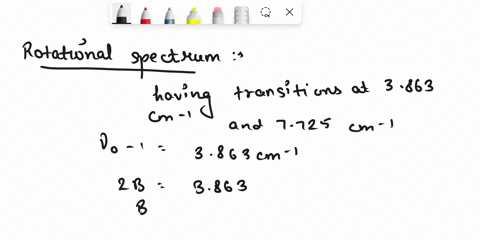 Rotational spectrum :-
having transitions at 3.863
cm-1 and 7.725 cm-1
ν0-1 = 3.863 cm-1
2B = 3.863
B